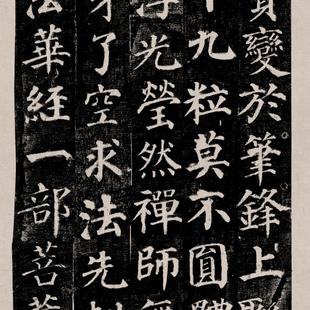 變於筆鋒上聯
十九粒莫不圓體
浮光瑩然禪師無
身了空求法先刺
法華經一部菩薩